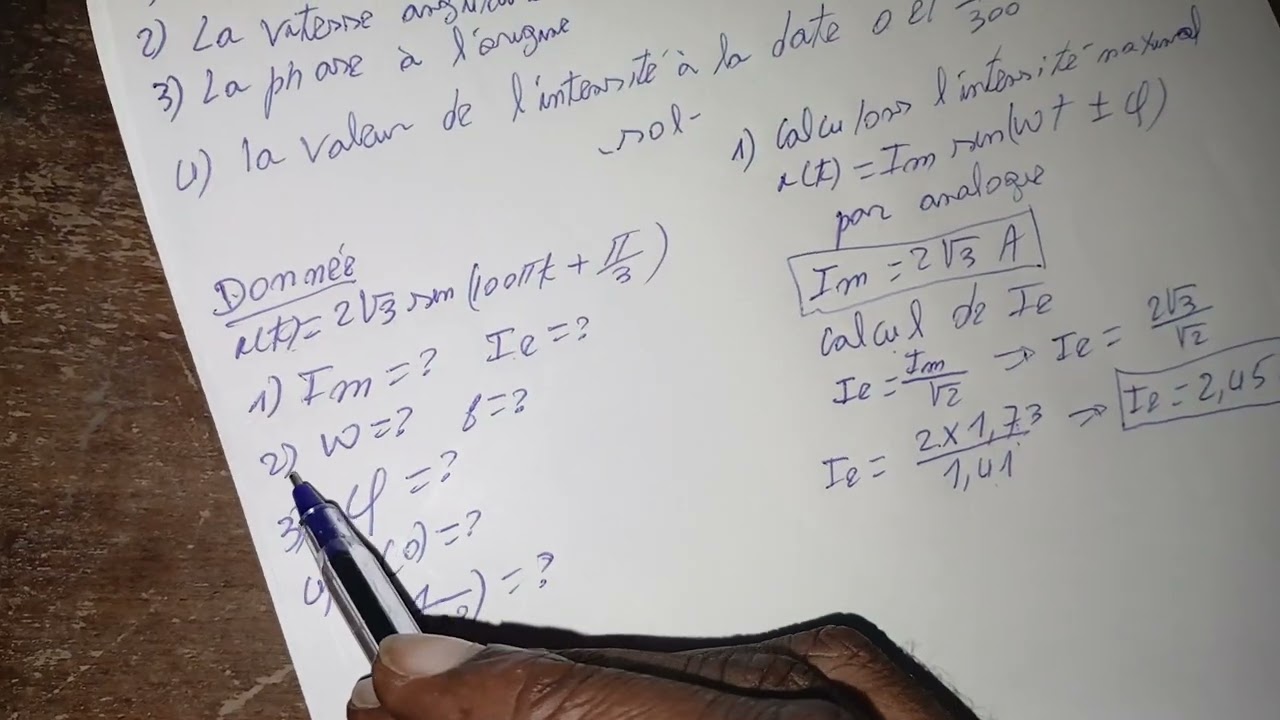 2) La vitesse
3) La phase à l'origine
4) la valeur de l'intensité à la date 0 et /300
sol-
Donnée
i(t)= 2√3 sin(100πt + π/3)
1) Im =? Ie =?
2) w=? f=?
3) φ =?
4) (0) =?
) =?
1) calculons l'intensité maximal
i(t) = Im sin(wt ± φ)
par analogie
Im = 2√3 A
calcul de Ie
Ie = Im/√2 → Ie = 2√3/√2
Ie = 2×1,73/1,41 → Ie = 2,45